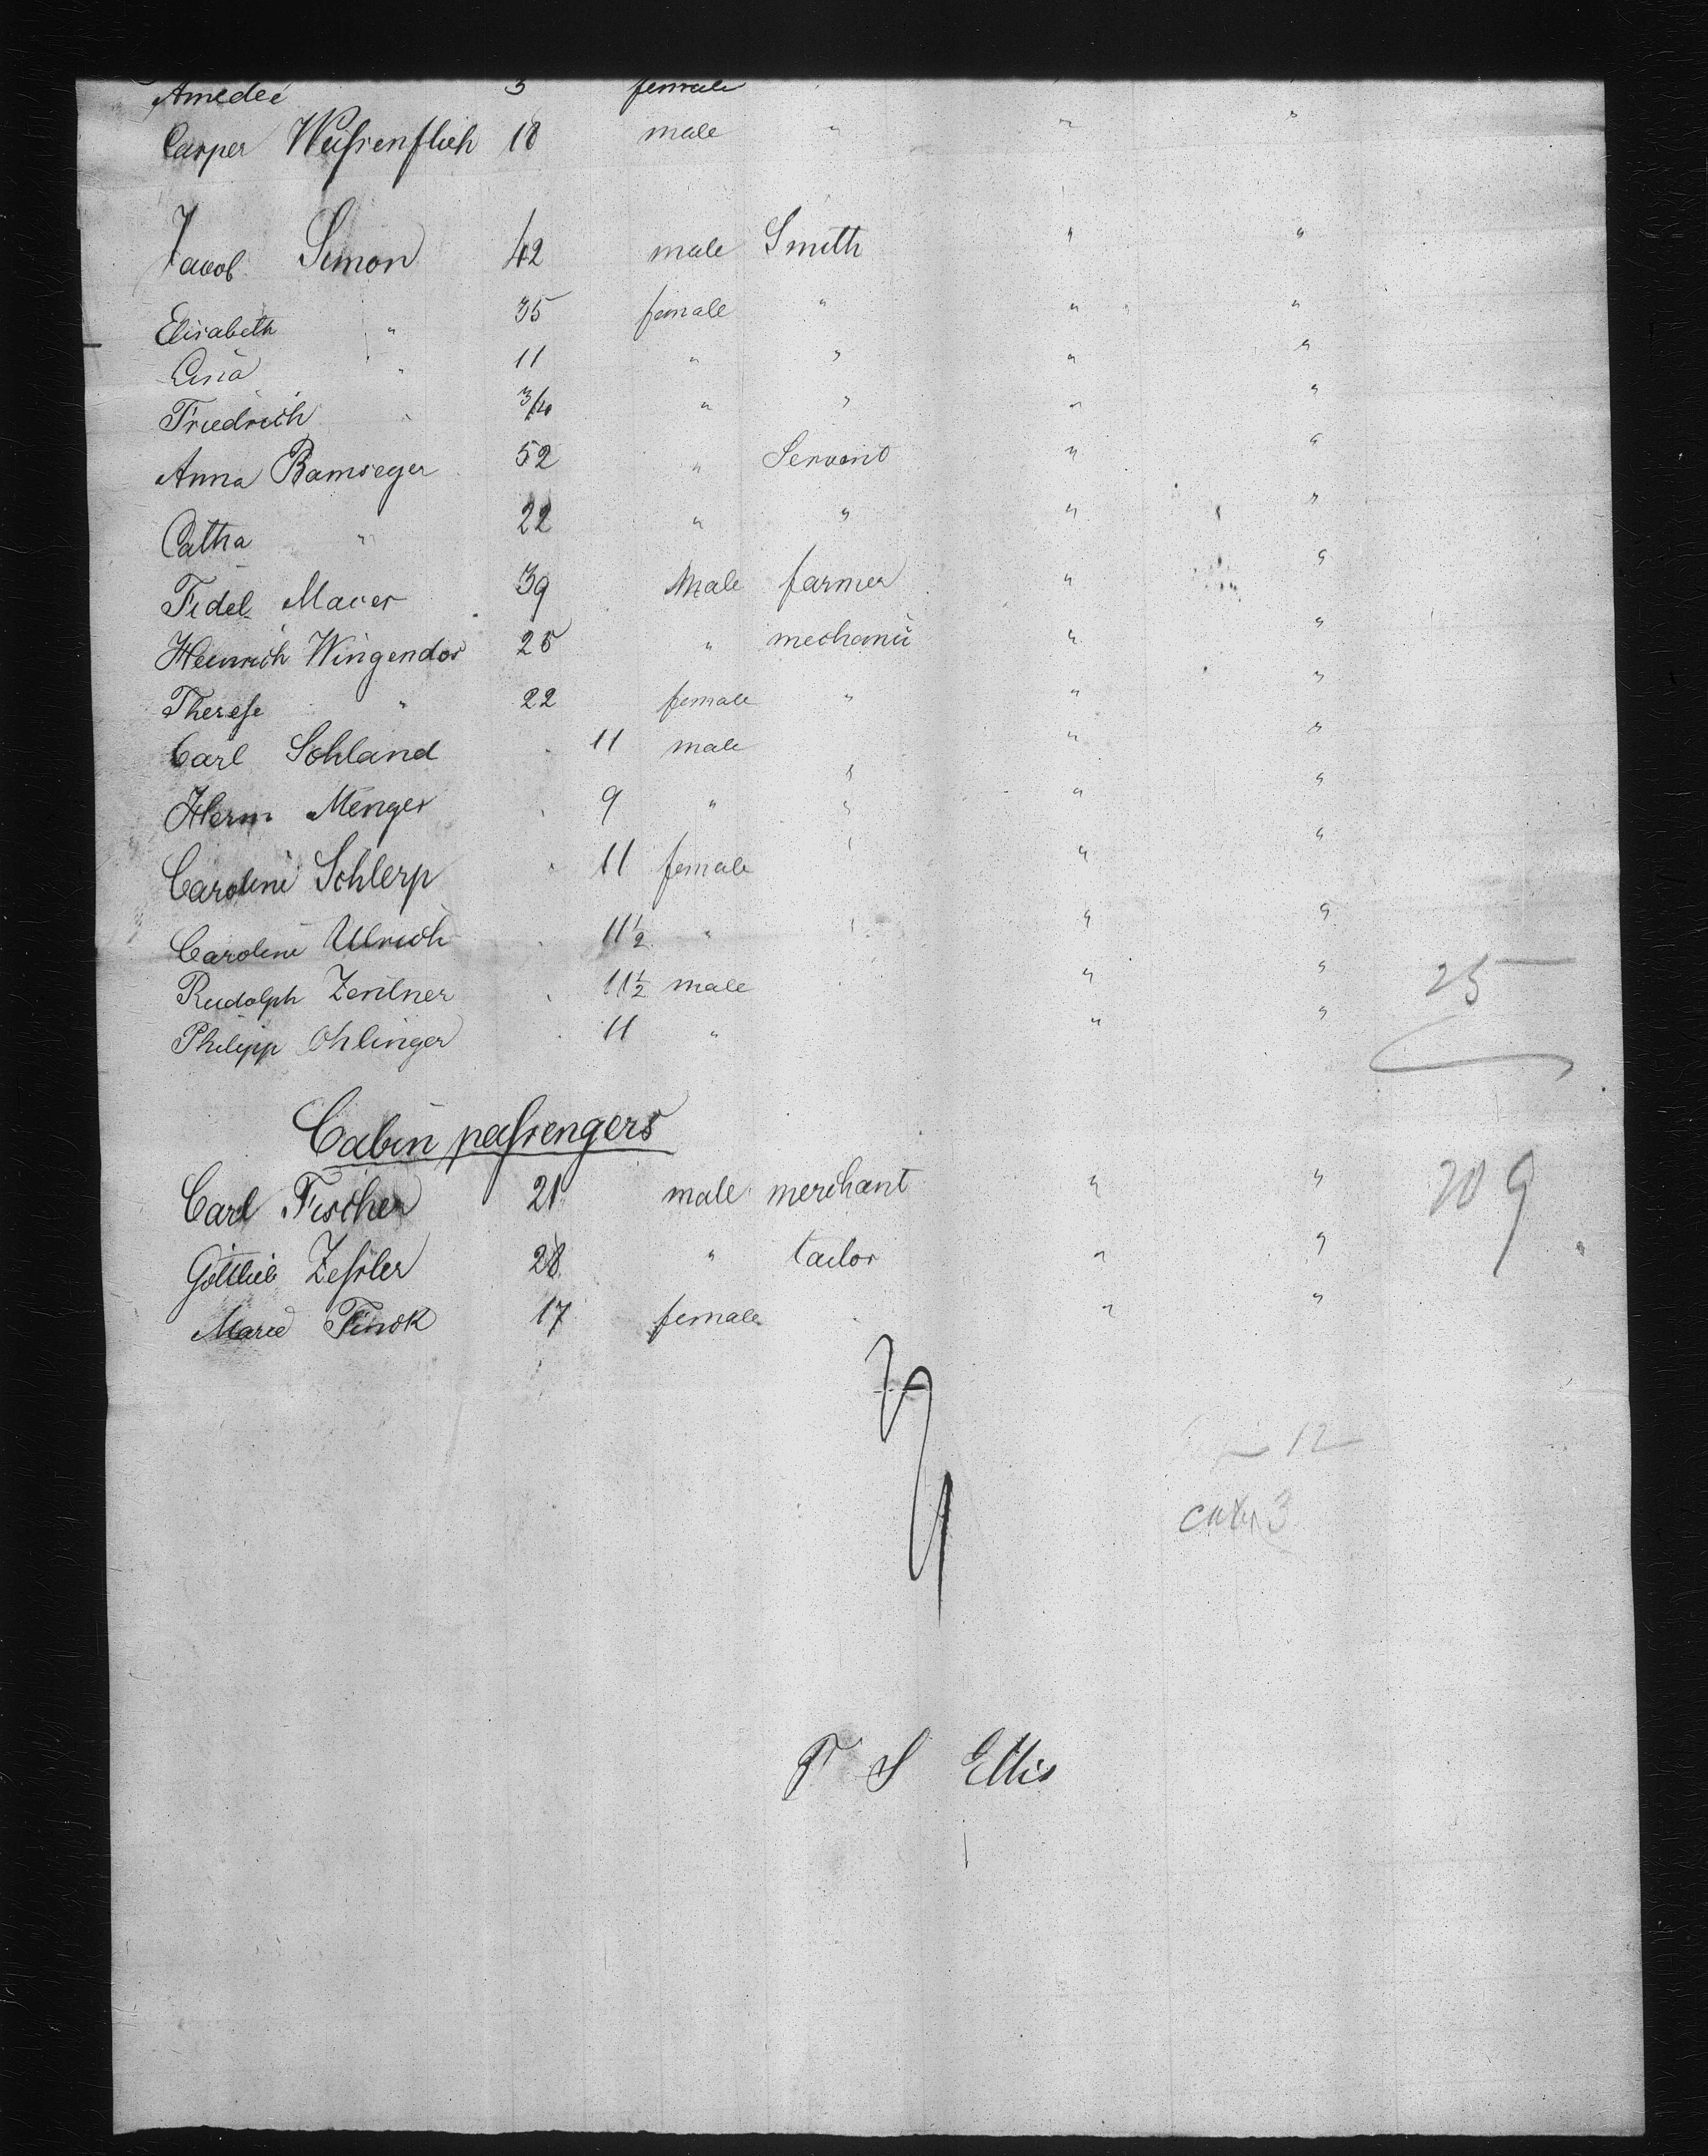 Amedee 3 female " "
Casper Weißenflieh 18 male " " "
Jacob Simon 42 male Smith " "
Elisabeth " 35 female " " "
Lina " 11 " " " "
Friedrich " 3/10 " " " "
Anna Bamseger 52 " Servant " "
Catha " 22 " " " "
Fidel Maver 39 Male farmer " "
Heinrich Wingendor 25 " mechanic " "
Therese " 22 female " " "
Carl Sohland 11 male " "
Herm Menger 9 " " " "
Caroline Schlerp 11 female " " "
Caroline Ulrich 11½ " " " "
Rudolph Zentner 11½ male " "
Philipp Ohlinger 11 " " "
25
Cabin paßengers
Carl Fischer 21 male merchant " "
209
Gottlieb Zeßler 28 " tailor " "
Marie Finck 17 female " "
12
cabin 3
T S Ellis